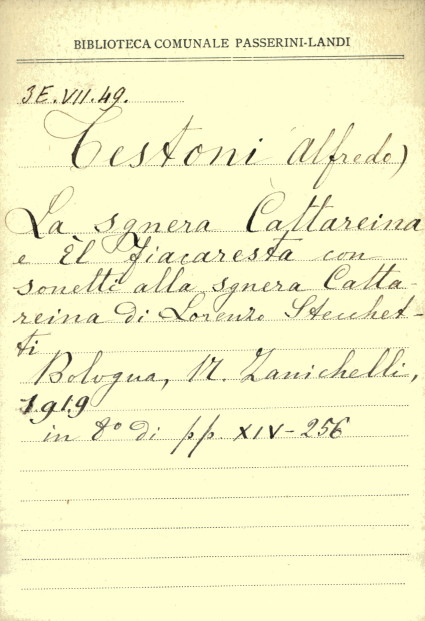 BIBLIOTECA COMUNALE PASSERINI-LANDI
3E.VII.49.
Testoni (Alfredo)
La sgnera Cattareina
e Èl fiacaresta con
sonetti alla sgnera Catta-
reina di Lorenzo Stecchet-
ti
Bologna, N. Zanichelli,
1919
in 8° di pp. XIV-256